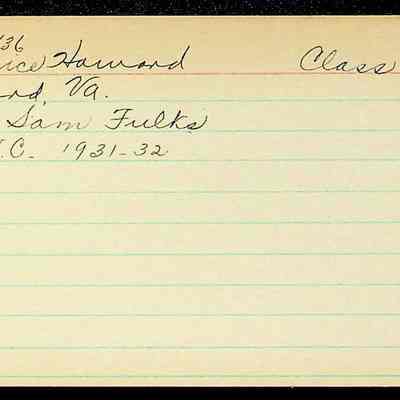 36
Howard Class
Va.
Sam Fulks
C. 1931-32